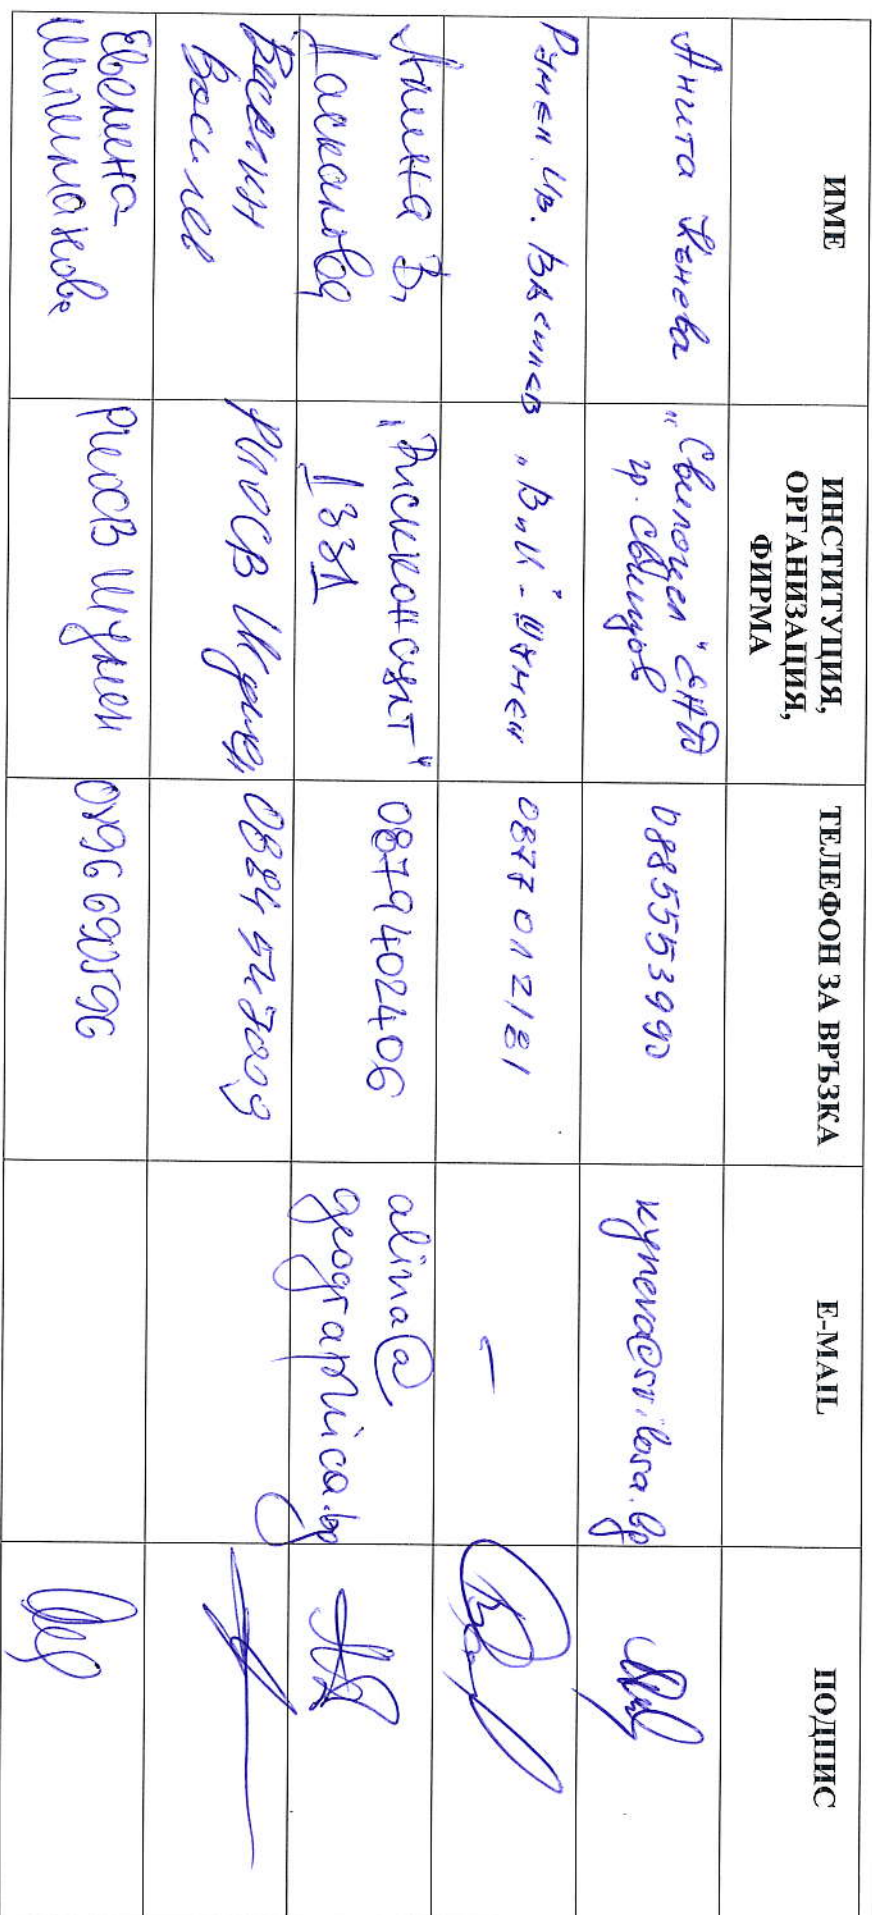 ИМЕ
ИНСТИТУЦИЯ, ОРГАНИЗАЦИЯ, ФИРМА
ТЕЛЕФОН ЗА ВРЪЗКА
E-MAIL
ПОДПИС
Анита Кънева
„Свилоцел" ЕАД
гр. Свищов
0885553990
kyneva@svilosa.bg
Румен Ив. Василев
„ВиК" - Шумен
0877012181
–
Алина В.
Ласкалова
„Рискконсулт"
1331
0879402406
alina@
geographica.bg
Веселин
Василев
РИОСВ Шумен
0884 547009
Евелина
РИОСВ Шумен
0896 690596